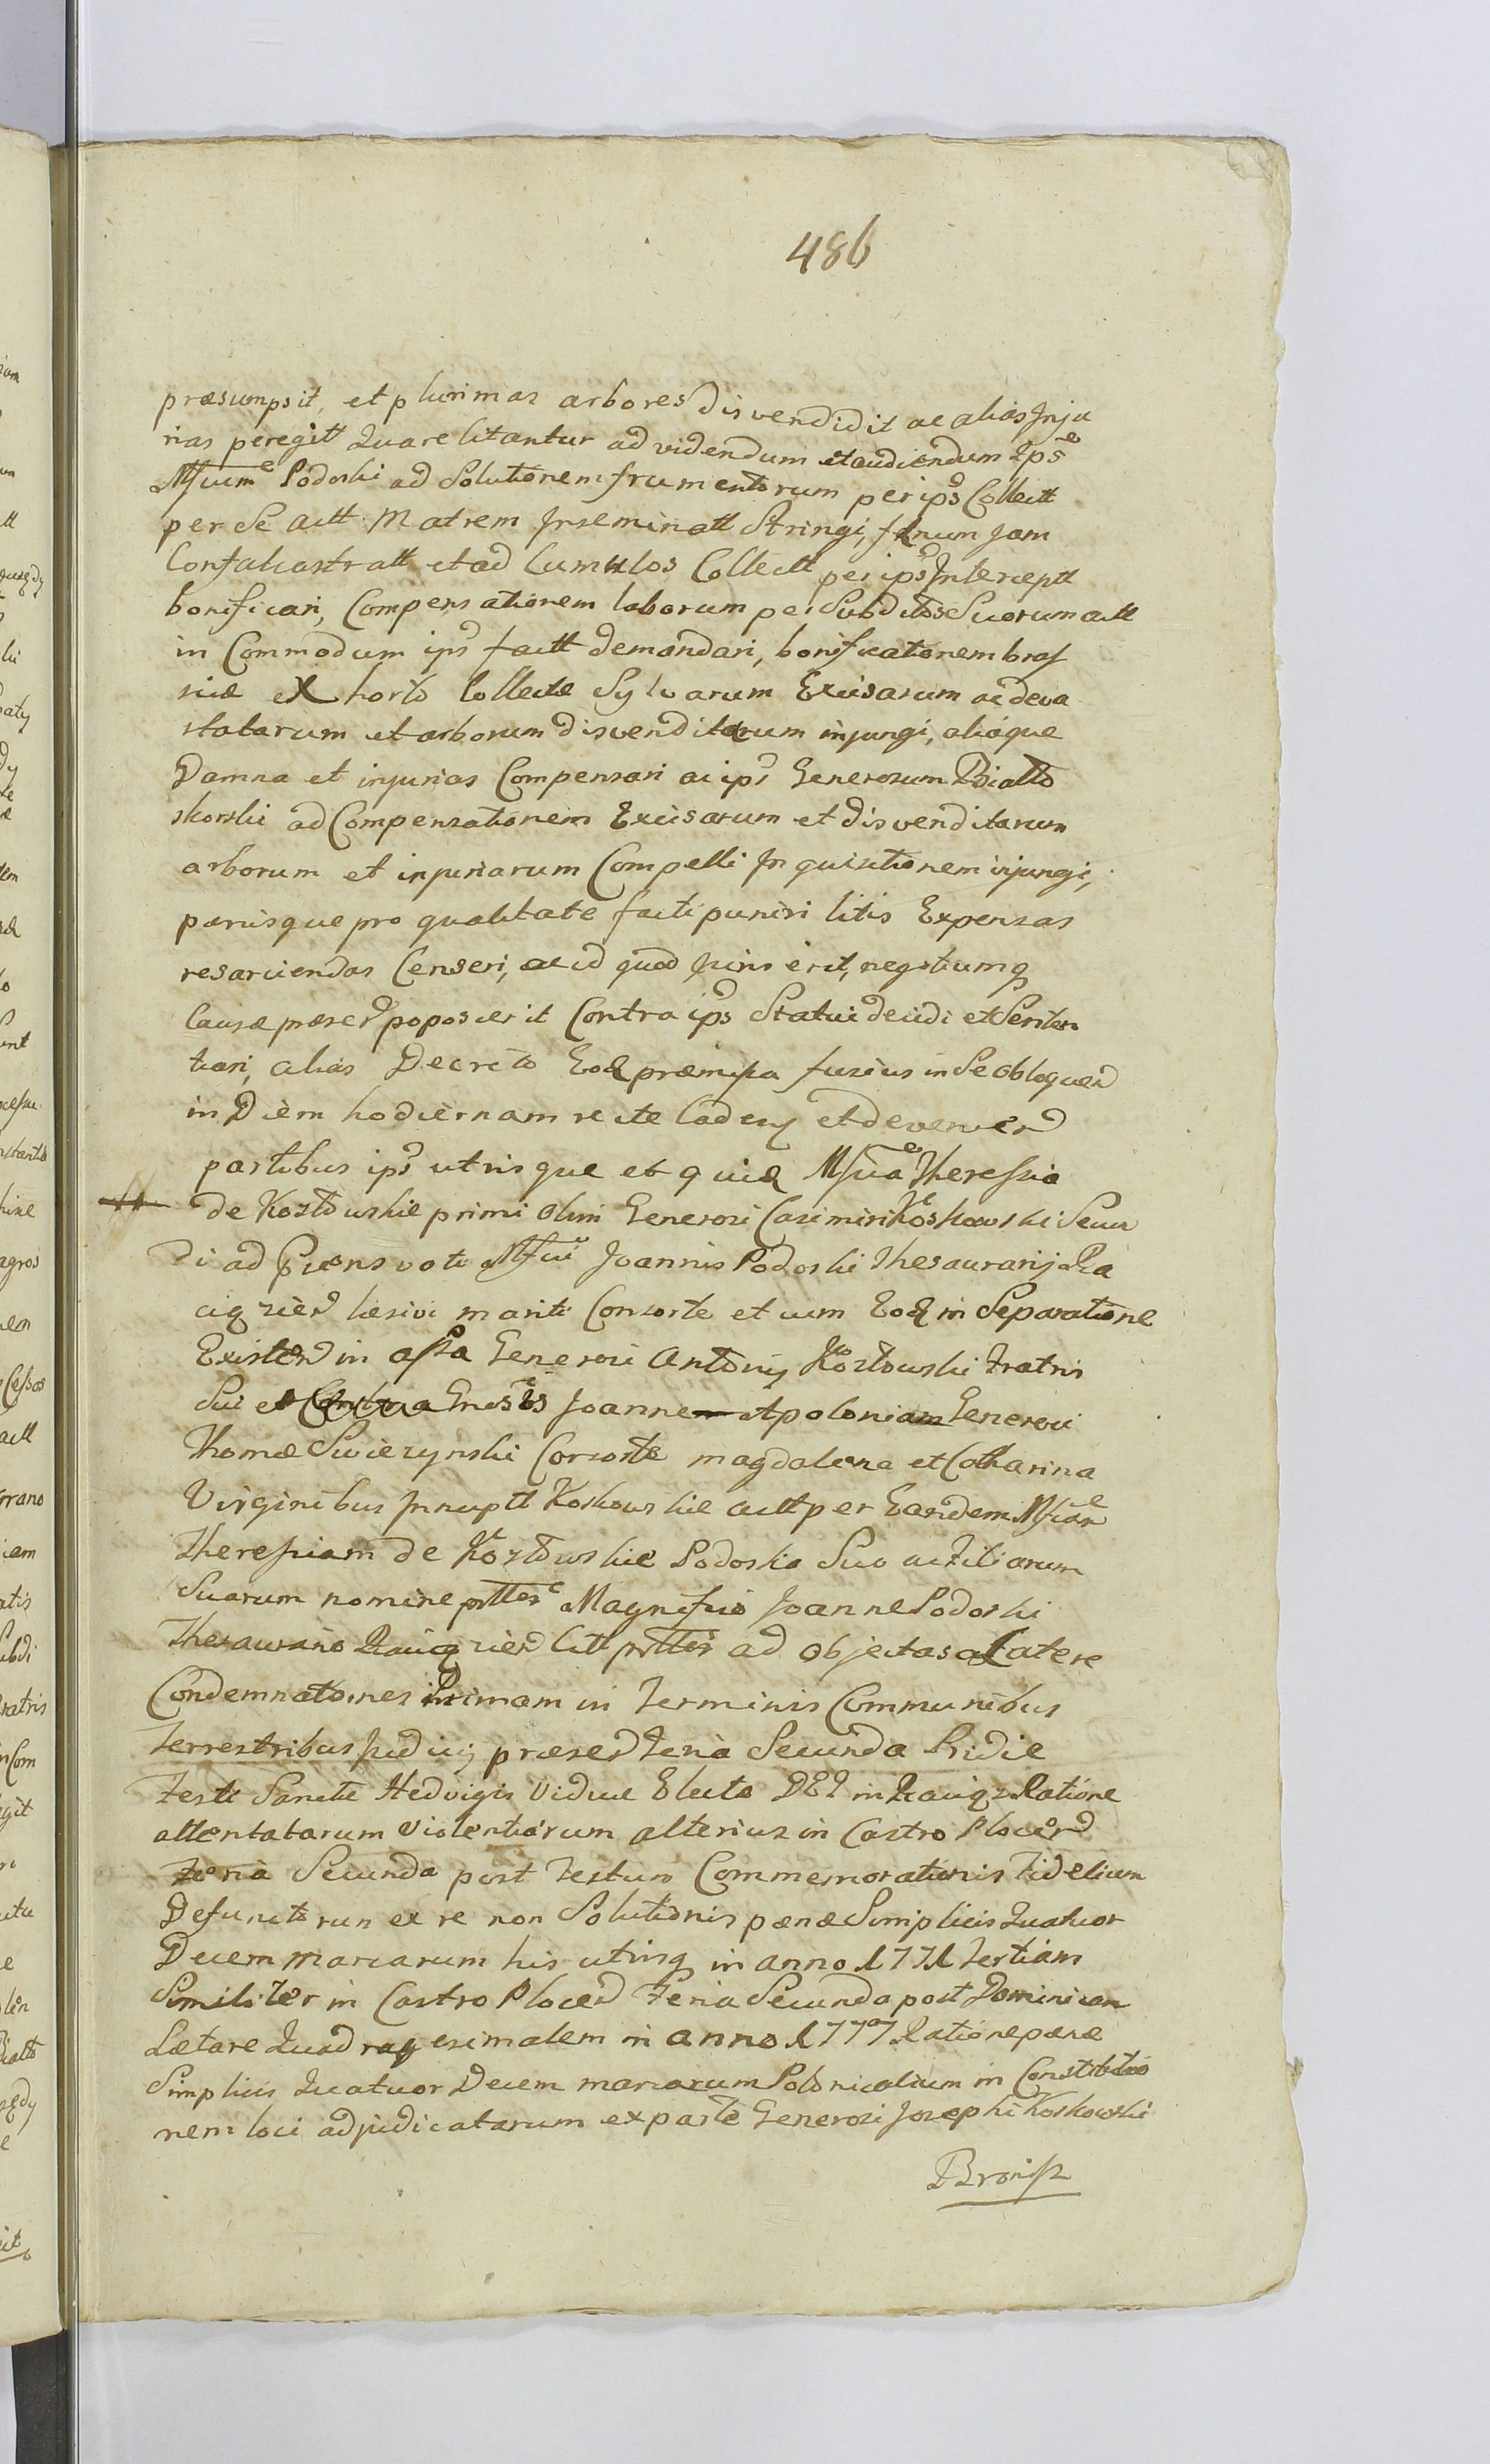 486
præsumpsit, et plurimas arbores disvendidit ac alias Inju
rias peregitt Quare litantur ad videndum et audiendum Ipse
Mfcum Podoski ad Solutionem frumentorum per ips Collectt
per Se actt Matrem Inseminatt Stringi, fænum jam
Confalcastratt et ad Cumulos Collectt per ips Interceptt
bonificari, Compensationem laborum per Subditos Suorum actt
in Commodum ips factt demandari, bonificationem braſ
sicæ ex horto Collectæ Sylvarum Excisarum ac deva
statarum et arborum disvenditarum injungi, aliaque
Damna et injurias Compensari ac ips Generosum Białło
skorski ad Compensationem Excisarum et disvenditarum
arborum et injuriarum Compelli Inquisitionem injungi,
pænisque pro qualitate facti puniri litis Expensas
resarciendas Censeri, ac id quod Juris erit, negotiumq
Causæ præsen poposcerit Contra ips Statui decidi et Senten
tiari, alias Decreto Eoq præmissa fusius in Se obloquen
in Diem hodiernam recte Caden et devenien
partibus ips utrisque et quia Mfica Theressia
de Kozłowskie primi olim Generosi Casimiri Koskowski Secun
di ad præns voti Mfci Joannis Podoski Thesaurarij Ra
ciąẓien læsivi mariti Consorte et cum Eoq in Separatione
Existen in assa Generosi Antonij Kozłowski Fratris
Sui et Gnosis Joanne Apolonia Generosi
Thomæ Swiezynski Consorte Magdalena et Catharina
Virginibus Innuptt Koskowskie actt per Eandem Mficam
Theressiam de Kozłowskie Podoska Suo ac Filiarum
Suarum nomine prtter Magnifico Joanne Podoski
Thesaurario Raciąẓien Citt prtter ad objectas a Latere
Condemnationes Primam in Terminis Communibus
Terrestribus Judicij præsen Feria Secunda Pridie
Festi Sanctæ Hedvigis Viduæ Electæ DEI in Raciąẓ Ratione
attentatarum Violentiarum alterius in Castro Plocen
Feria Secunda post Festum Commemorationis Fidelium
Defunctorum ex re non Solutionis pænæ Simplicis Quatuor
Decem marcarum his utrisq in anno 1771 Tertiam
Similiter in Castro Plocen Feria Secunda post Dominicam
Lætare Quadragesimalem in anno 1777 Ratione pænæ
Simplicis Quatuor Decem marcarum Polonicalium in Constitutio
nem loci adjudicatarum ex parte Generosi Josephi Koskowski
Broniss